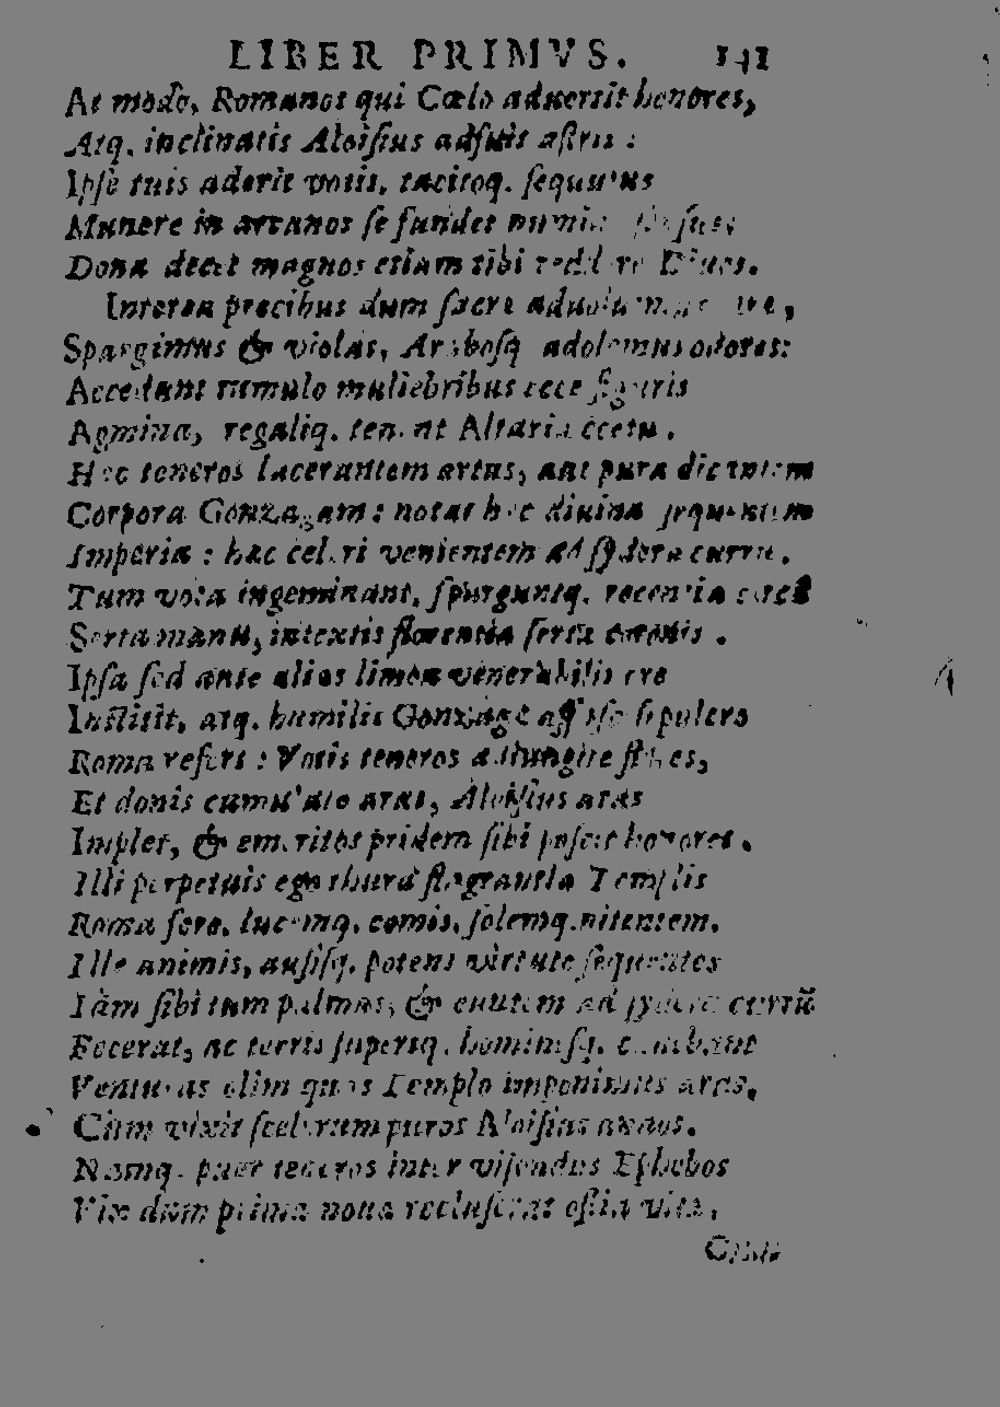 LIBER PRIMVS. 141
At modo, Romanos qui Cœlo aduertit honores,
Atq. inclinatis Aloisius adsuit astris :
Ipse tuis aderit votis, tacitoq. sequutus
Munere in arcanos se fundet
Dona decet magnos etiam tibi reddere Diues.
Interea precibus dum sacre
Spargimus & violas, Arabosq adolemus odores:
Accedunt tumulo muliebribus ecce figuris
Agmina, regaliq. tenent Altaria cœtu.
Hec teneros lacerantem artus, ant pura dicantem
Corpora Gonzagam : notat hec diuina sequentem
Imperia : hac celeri venientem ad sydera curru.
Tum vota ingeminant, sparguntq. recentia
Serta manu, intextis florentia serta coronis.
Ipsa sed ante alias limen venerabilis ore
Institit, atq. humilis Gonzage affusa sepulcro
Roma refert : Votis teneros adiungite flores,
Et donis cumulate aras, Aloisius aras
Implet, & emeritos pridem sibi poscit honores.
Illi perpetuis ego thura flagrantia Templis
Roma fero, lucemq. comis, solemq. nitentem.
Ille animis, ausisq. potens virtute sequentes
Iàm sibi tum palmas, & euntem ad sydera currũ
Fecerat, ac terris superisq. hominisq.
Venturas olim quas Templo imponimus aras,
Cùm vixit scelerum puros Aloisius annos.
Namq. puer teneros inter visendus Ephebos
Vix dum prima noua recluserat ostia vita,